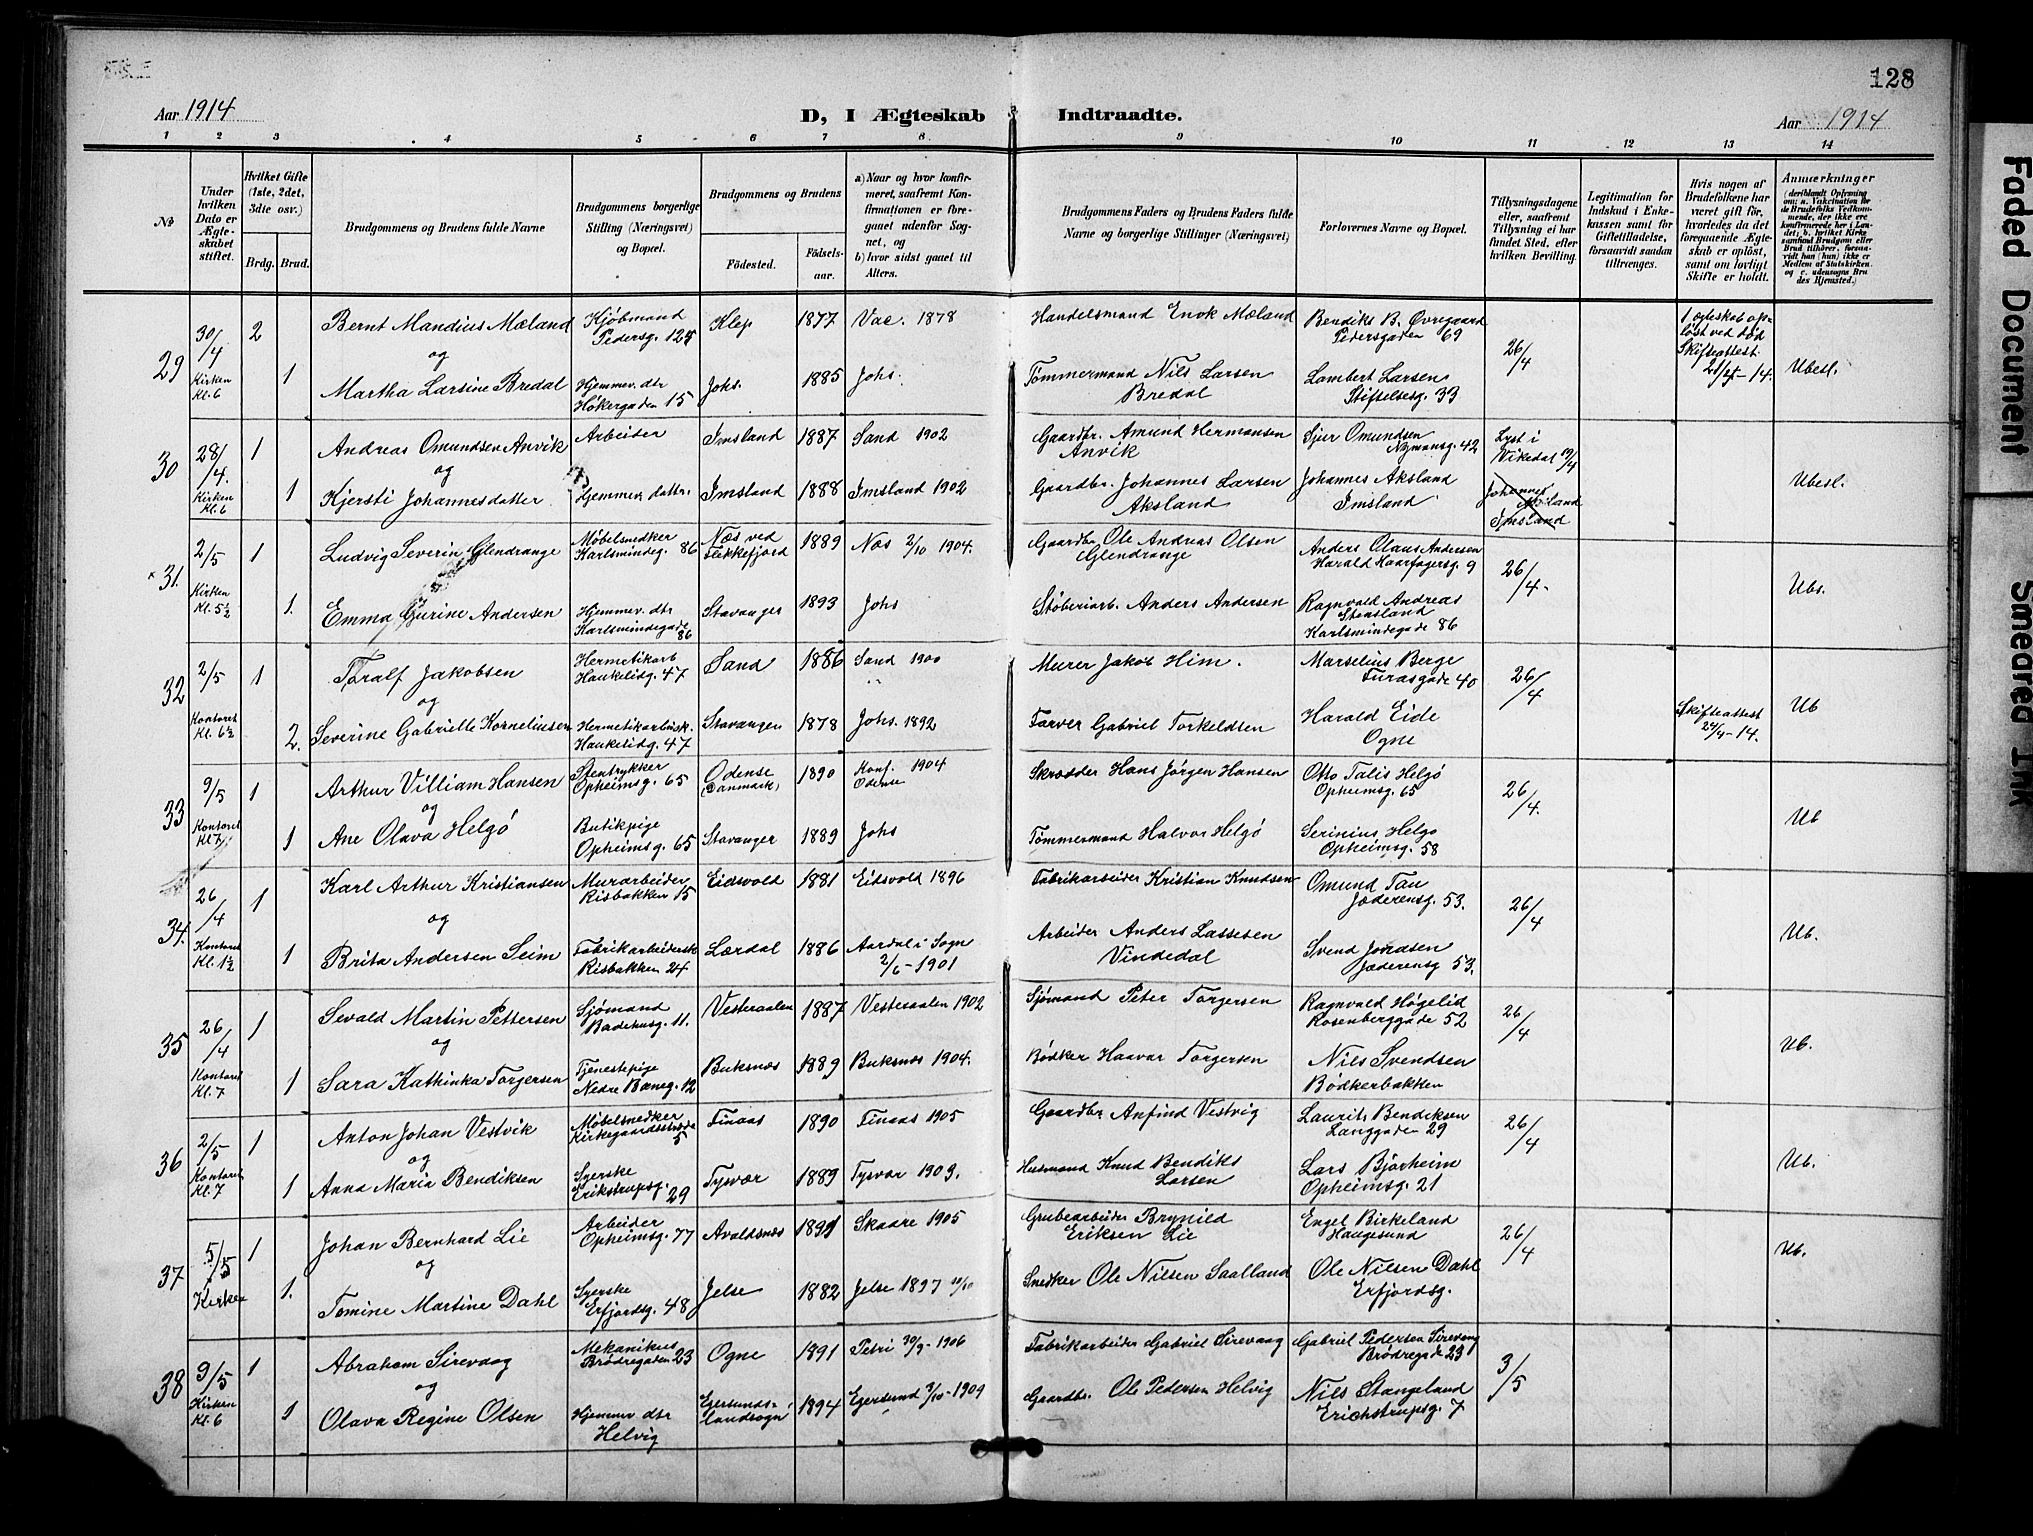 128
Aar 1914
D, I Ægteskab Indtraadte.
Aar 1914
1 2 3 4 5 6 7 8 9 10 11 12 13 14
№
Under hvilken Dato er Ægteskabet stiftet.
Hvilket Gifte (1ste, 2det, 3die osv.)
Brdg. Brud.
Brudgommens og Brudens fulde Navne
Brudgommens borgerlige Stilling (Næringsvei) og Bopæl.
Brudgommens og Brudens
Födested.
Födselsaar.
a) Naar og hvor konfirmeret, saafremt Konfirmationen er foregaaet udenfor Sognet, og
b) hvor sidst gaaet til Alters.
Brudgommens Faders og Brudens Faders fulde Navne og borgerlige Stillinger (Næringsvei)
Forlovernes Navne og Bopæl.
Tillysningsdagene eller, saafremt Tillysning ei har fundet Sted, efter hvilken Bevilling.
Legitimation for Indskud i Enkekassen samt for Giftetilladelse, forsaavidt saadan tiltrænges.
Hvis nogen af Brudefolkene har været gift för, hvorledes da det foregaaende Ægteskab er oplöst, samt om lovligt Skifte er holdt.
Anmærkninger
(deriblandt Oplysning om: a. Vakcination for de Brudefolks Vedkommende, der ikke ere konfirmerede her i Landet; b. hvilket Kirkesamfund Brudgom eller Brud tilhörer, forsaavidt han (hun) ikke er Medlem af Statskirken og c. udensogns Brudes Hjemsted.)
29
30/4 Kirken Kl. 6
2
Bernt Mandius Mæland
og
Kjøbmand Pedersg. 125
Klep 1877 Vac. 1878
Handelsmand Enok Mæland
Bendiks B. Øvregaard Pedersgaden 69
26/4
1. ægteskab opløst ved død Skifteattest 21/4-14.
Ubesl.
1
Martha Larsine Bredal
Hjemmev. dtr Høkergaden 15
Johs. 1885 Johs.
Tømmermand Nils Larsen Bredal
Lambert Larsen Stiftelsesg. 33
30
28/4. Kirken Kl. 6
1
Andreas Omundsen Anvik
og
Arbeider
Imsland 1887 Sand 1902
Gaardbr. Amund Hermansen Anvik
Sjur Omundsen Nymansg. 42
Lyst i Vikedal 19/4
Ubesl.
1
Kjersti Johannesdatter
Hjemmev. datter
Imsland 1888 Imsland 1902
Gaardbr. Johannes Larsen Aksland
Johannes Aksland Imsland
Johannes Aksland Imsland
× 31.
2/5 Kirken Kl. 5½
1
Ludvig Severin Glendrange
og
Møbelsnedker Karlsmindeg. 86
Næs ved Flekkefjord 1889 Næs 2/10 1904.
Gaardbr Ole Andreas Olsen Glendrange
Anders Olaus Andersen Harald Haarfagersg. 9
26/4.
Ubs.
1.
Emma Gurine Andersen
Hjemmev. dtr Karlsmindegade 86
Stavanger 1893 Johs
Støberiarb. Anders Andersen
Ragnvald Andreas Stensland Karlsmindegade 86
32
2/5 Kontoret Kl. 6½
1
Toralf Jakobsen
og
Hermetikarb Haukelidg. 47
Sand 1886 Sand 1900
Murer Jakob Him.
Marselius Berge Furasgade 40
26/4
Ub
2.
Severine Gabrielle Korneliusen
Hermetikarbeidsk. Haukelidg. 47
Stavanger 1878 Johs. 1892
Farver Gabriel Torkeldsen
Harald Eide Ogne
Skifteattest 24/4-14.
33
9/5 Kontoret Kl 7½
1
Arthur Villiam Hansen
og
Stentrykker Opheimsg. 65
Odense (Danmark) 1890 Konf. 1904 Odense
Skrædder Hans Jørgen Hansen
Otto Talis Helgø Opheimsg. 65
26/4.
Ub
1
Ane Olava Helgø
Butikpige Opheimsg. 65
Stavanger 1889 Johs
Tømmermand Halvor Helgø
Serinius Helgø Opheimsg. 58
34.
26/4 Kontoret Kl. 1½
1
Karl Arthur Kristiansen
og
Murarbeider Risbakken 15
Eidsvold 1881 Eidsvold 1896
Fabrikarbeider Kristian Knudsen
Omund Tau Jæderensg. 53.
26/4
Ub.
1
Brita Andersen Seim
Fabrikarbeiderske Risbakken 24
Lærdal 1886 Aardal i Sogn 2/6-1901
Arbeider Anders Lassesen Vindedal
Svend Jonasen Jæderensg 53.
35
26/4 Kontoret Kl. 7
1
Sevald Martin Pettersen
og
Sjømand Badehusg. 11.
Vesteraalen 1887 Vesteraalen 1902
Sjømand Peter Torgersen
Ragnvald Høgelid Rosenberggade 52
26/4
Ub.
1
Sara Kathinka Torgersen
Tjenestepige Nedre Baneg. 12
Buksnæs 1889 Buksnæs 1904.
Bødker Haavar Torgersen
Nils Svendsen Bødkerbakken
36
2/5 Kontoret Kl. 7
1
Anton Johan Vestvik
og
Møbelsnedker Kirkegaardsstræde 5
Finaas 1890 Finaas 1905
Gaardbr Anfind Vestvig
Laurits Bendiksen Langgaden 29
26/4
Ub.
1
Anna Maria Bendiksen
Syerske Erikstrupsg. 29
Tysvær 1889 Tysvær 1903.
Husmand Knud Bendiks Larsen
Lars Bjørheim Opheimsg. 21
37
5/5 Kirken
1
Johan Bernhard Lie
og
Arbeider Opheimsg. 77
Avaldsnæs 1891 Skaare 1905
Grubearbeider Brynild Eriksen Lie
Engel Birkeland Haugesund
26/4
Ub.
1.
Tomine Martine Dahl
Syerske Erfjordsg. 48
Jelse 1882 Jelse 1897 10/10
Snedker Ole Nilsen Saalland
Ole Nilsen Dahl Erfjordsg.
38
9/5 Kirken Kl. 6
1
Abraham Sirevaag
og
Mekanikus Brødregaden 23
Ogne 1891 Petri 30/9-1906
Fabrikarbeider Gabriel Sirevaag
Gabriel Pedersen Sirevaag Brødregade 23
3/5
1
Olava Regine Olsen
Hjemmev dtr Helvig
Egersunds landsogn 1894 Egersund 3/10-1909
Gaardbr. Ole Pedersen Helvig
Nils Stangeland Erichstrupsg. 7
Faded Document
Smeared Ink